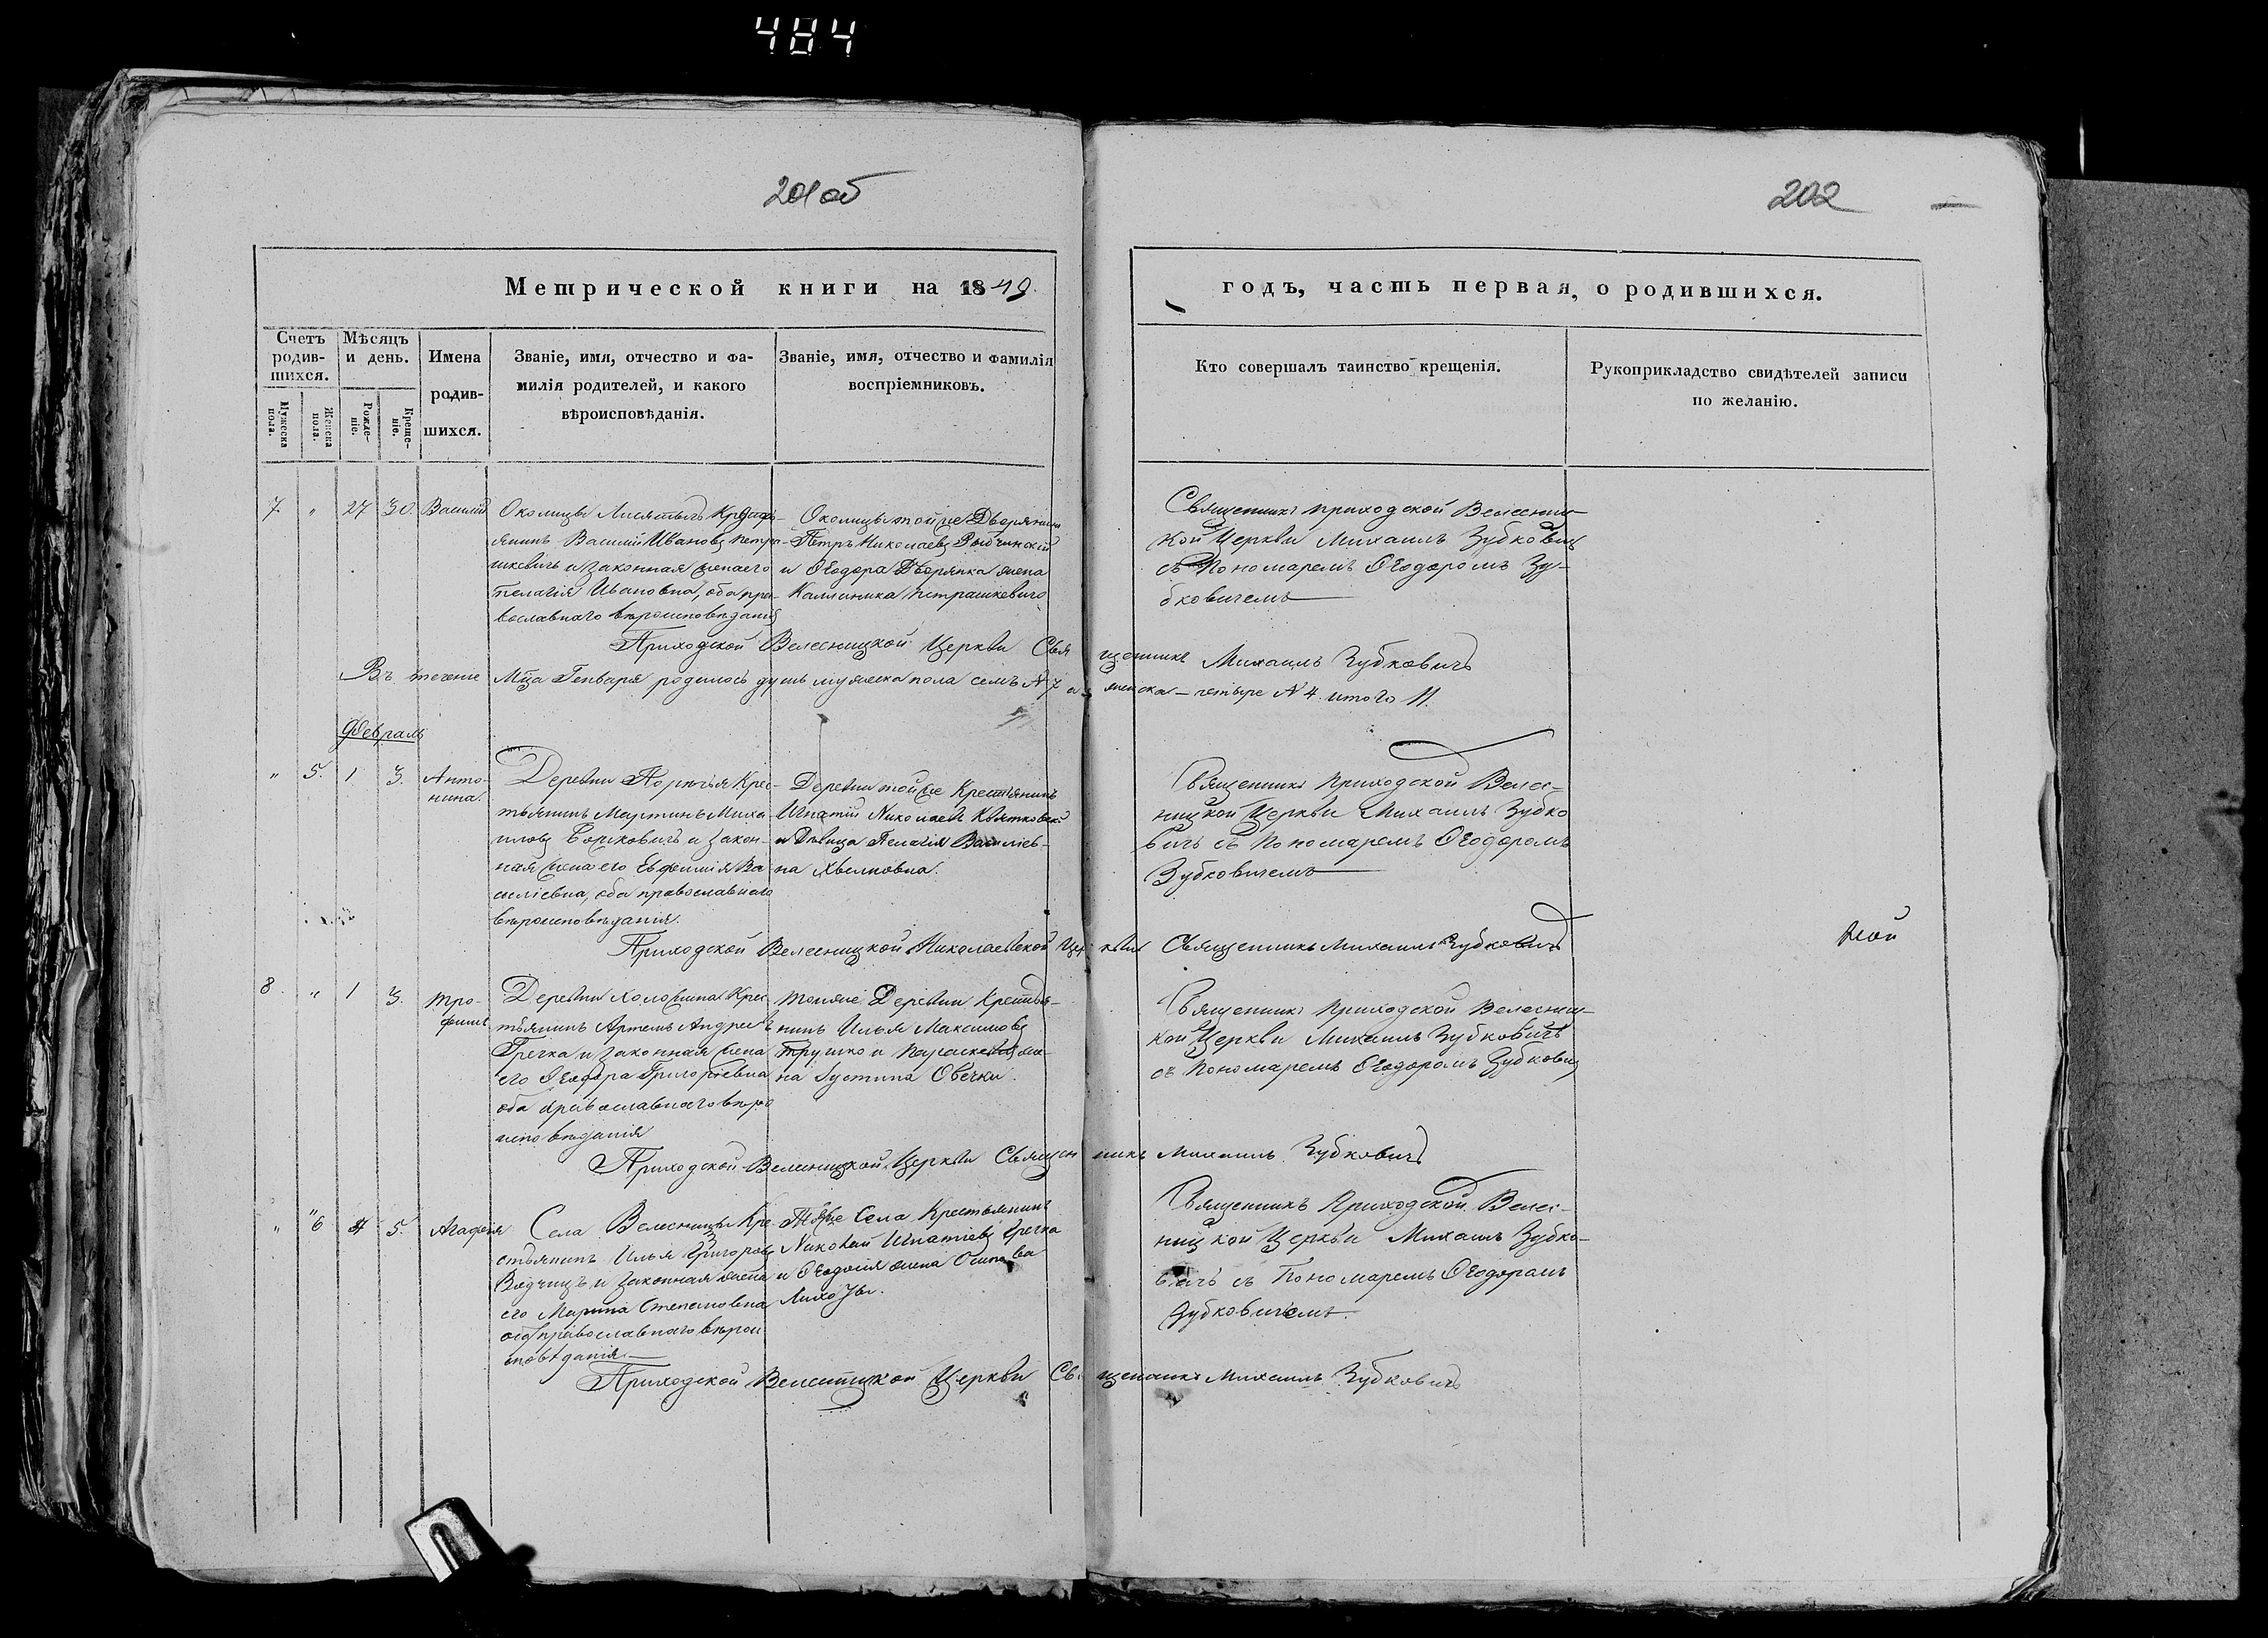 484
201 об
202
Метрической книги на 1849.
годъ, часть первая, о родившихся.
Счетъ родив-шихся.
Мѣсяцъ и день.
Мужеска пола.
Женска пола.
Рожде-ніе.
Креще-ніе.
Имена родив-шихся.
Званіе, имя, отчество и фа-
милія родителей, и какого
вѣроисповѣданія.
Званіе, имя, отчество и фамилія
воспріемниковъ.
Кто совершалъ таинство крещенія.
Рукоприкладство свидѣтелей записи
по желанію.
7 " 27 30 Василій
Околицы
янинъ Василій Ивановъ Петра-
шкевичъ и законная жена его
Пелагія Ивановна, оба пра-
вославнаго вѣроисповѣданія
Околицы той же Дворянинъ
Петръ Николаевъ
и Ѳеодора Дворянка жена
Калиника Петрашкевича
Священникъ приходской Велесниц-
кой Церкви Михаилъ Зубковичъ
съ Пономаремъ Ѳеодоромъ Зу-
бковичемъ
Приходской Велесницкой Церкви Священникъ Михаилъ Зубковичъ
Въ течение Мца Генваря родилось душъ мужеска пола семъ N 7 а женска – четыре N 4 итого 11.
Февраль
" 5. 1 3. Анто-
нина.
Деревни Порѣчья Крес-
тьянинъ Мартинъ Миха-
иловъ и закон-
ная жена его Евфимія Ва
силіевна, оба православнаго
вѣроисповѣданія.
Деревни той же Крестьянинъ
Игнатій Николаевъ
и Дѣвица Пелагія Василіев-
на
Священникъ Приходской Велес-
ницкой Церкви Михаилъ Зубко
вичъ съ Пономаремъ Ѳеодоромъ
Зубковичемъ
Приходской Велесницкой Николаевской Церкви Священникъ Михаилъ Зубковичъ
8 " 1 3. Тро-
фимъ
Деревни Крес-
тьянинъ Артемъ Андреевъ
Гречка и законная жена
его Ѳеодора Григоріевна
оба православнаго вѣро
исповѣданія
Тойже Деревни Крестья-
нинъ Илья Максимовъ
Трушко и Параскевія же-
на Іустина Овечки.
Священникъ Приходской Велесниц-
кой Церкви Михаилъ Зубковичъ
съ Пономаремъ Ѳеодоромъ Зубкович
Приходской Велесницкой Церкви Священникъ Михаилъ Зубковичъ
" 6 4 5. Агафія
Села Велесницы Кре-
стьянинъ Илья Григоровъ
и законная жена
его Марина Степановна
оба православнаго вѣрои
сповѣданія
Тогоже Села Крестьянинъ
Николай Игнатіевъ Гречка
и Ѳеодосія жена Осипова
Священникъ Приходской Велес-
ницкой Церкви Михаилъ Зубко-
вичъ съ Пономаремъ Ѳеодоромъ
Зубковичемъ.
Приходской Велесницкой Церкви Священникъ Михаилъ Зубковичъ